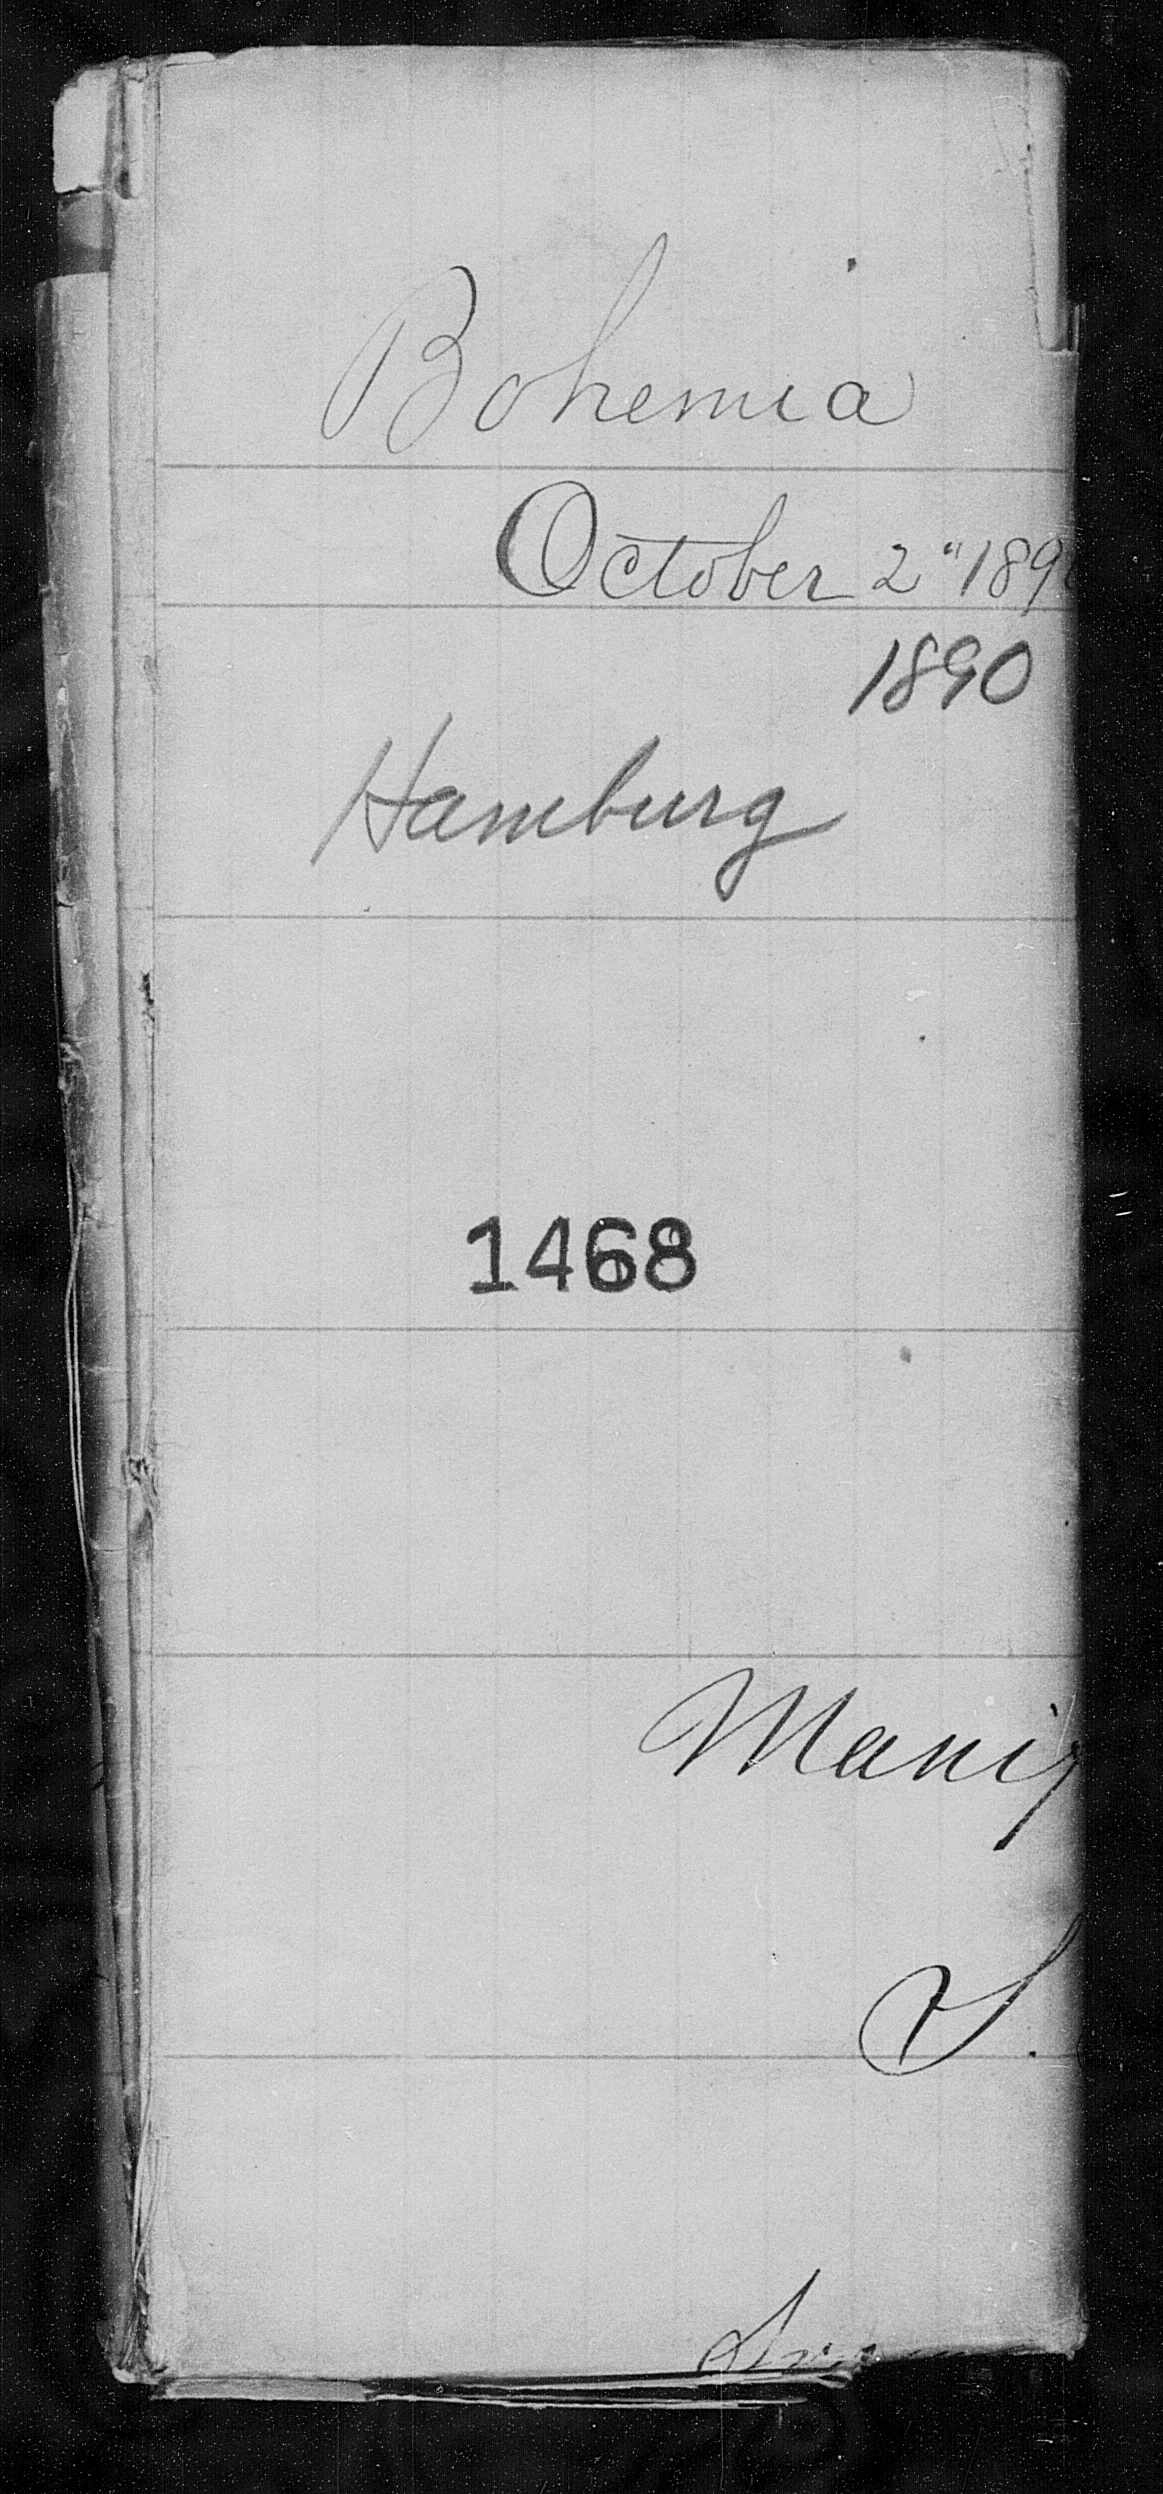 Bohemia
October 2" 189
1890
Hamburg
1468
Mani
S.